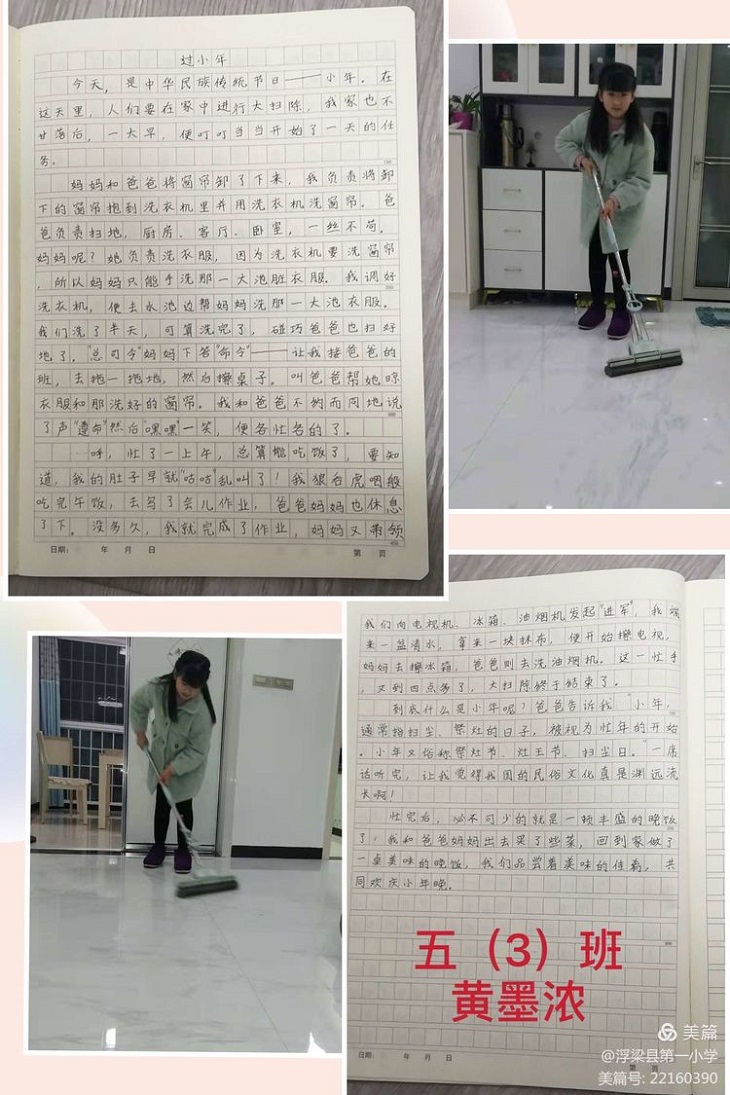 过小年
今天，是中华民族传统节日——小年。在
这天里，人们要在家中进行大扫除，我家也不
甘落后，一大早，便叮叮当当开始了一天的任
务。
妈妈和爸爸将窗帘卸了下来，我负责将卸
下的窗帘抱到洗衣机里并用洗衣机洗窗帘。爸
爸负责扫地，厨房、客厅、卧室，一丝不苟。
妈妈呢？她负责洗衣服，因为洗衣机要洗窗帘
，所以妈妈只能手洗那一大池脏衣服。我调好
洗衣机，便去水池边帮妈妈洗那一大池衣服。
我们洗了半天，可算洗完了，碰巧爸爸也扫好
地了，"总司令"妈妈下答"命令"——让我接爸爸的
班，去拖一拖地，然后擦桌子。叫爸爸帮她晾
衣服和那洗好的窗帘。我和爸爸不约而同地说
了声"遵命"然后"嘿嘿"一笑，便各忙各的了。
呼，忙了一上午，总算能吃饭了，要知
道，我的肚子早就"咕咕"乱叫了！我狼吞虎咽般
吃完午饭，去写了会儿作业，爸爸妈妈也休息
了下。没多久，我就完成了作业，妈妈又带领
日期： 年 月 日 第 页
我们向电视机、冰箱、油烟机发起"进军"，我端
来一盆清水，拿来一块抹布，便开始擦电视，
妈妈去擦冰箱，爸爸则去洗油烟机。这一忙乎
，又到四点多了，大扫除终于结束了。
到底什么是小年呢？爸爸告诉我："小年，
通常指扫尘、祭灶的日子，被视为忙年的开始
。小年又俗称祭灶节、灶王节、扫尘日。"一席
话听完，让我觉得我国的民俗文化真是渊远流
长啊！
忙完后，必不可少的就是一顿丰盛的晚饭
了！我和爸爸妈妈出去买了些菜，回到家做了
一桌美味的晚饭，我们品尝着美味的佳肴，共
同欢庆小年晚。
五（3）班
黄墨浓
日期： 年 月 日 第 页
美篇
@浮梁县第一小学
美篇号: 22160390